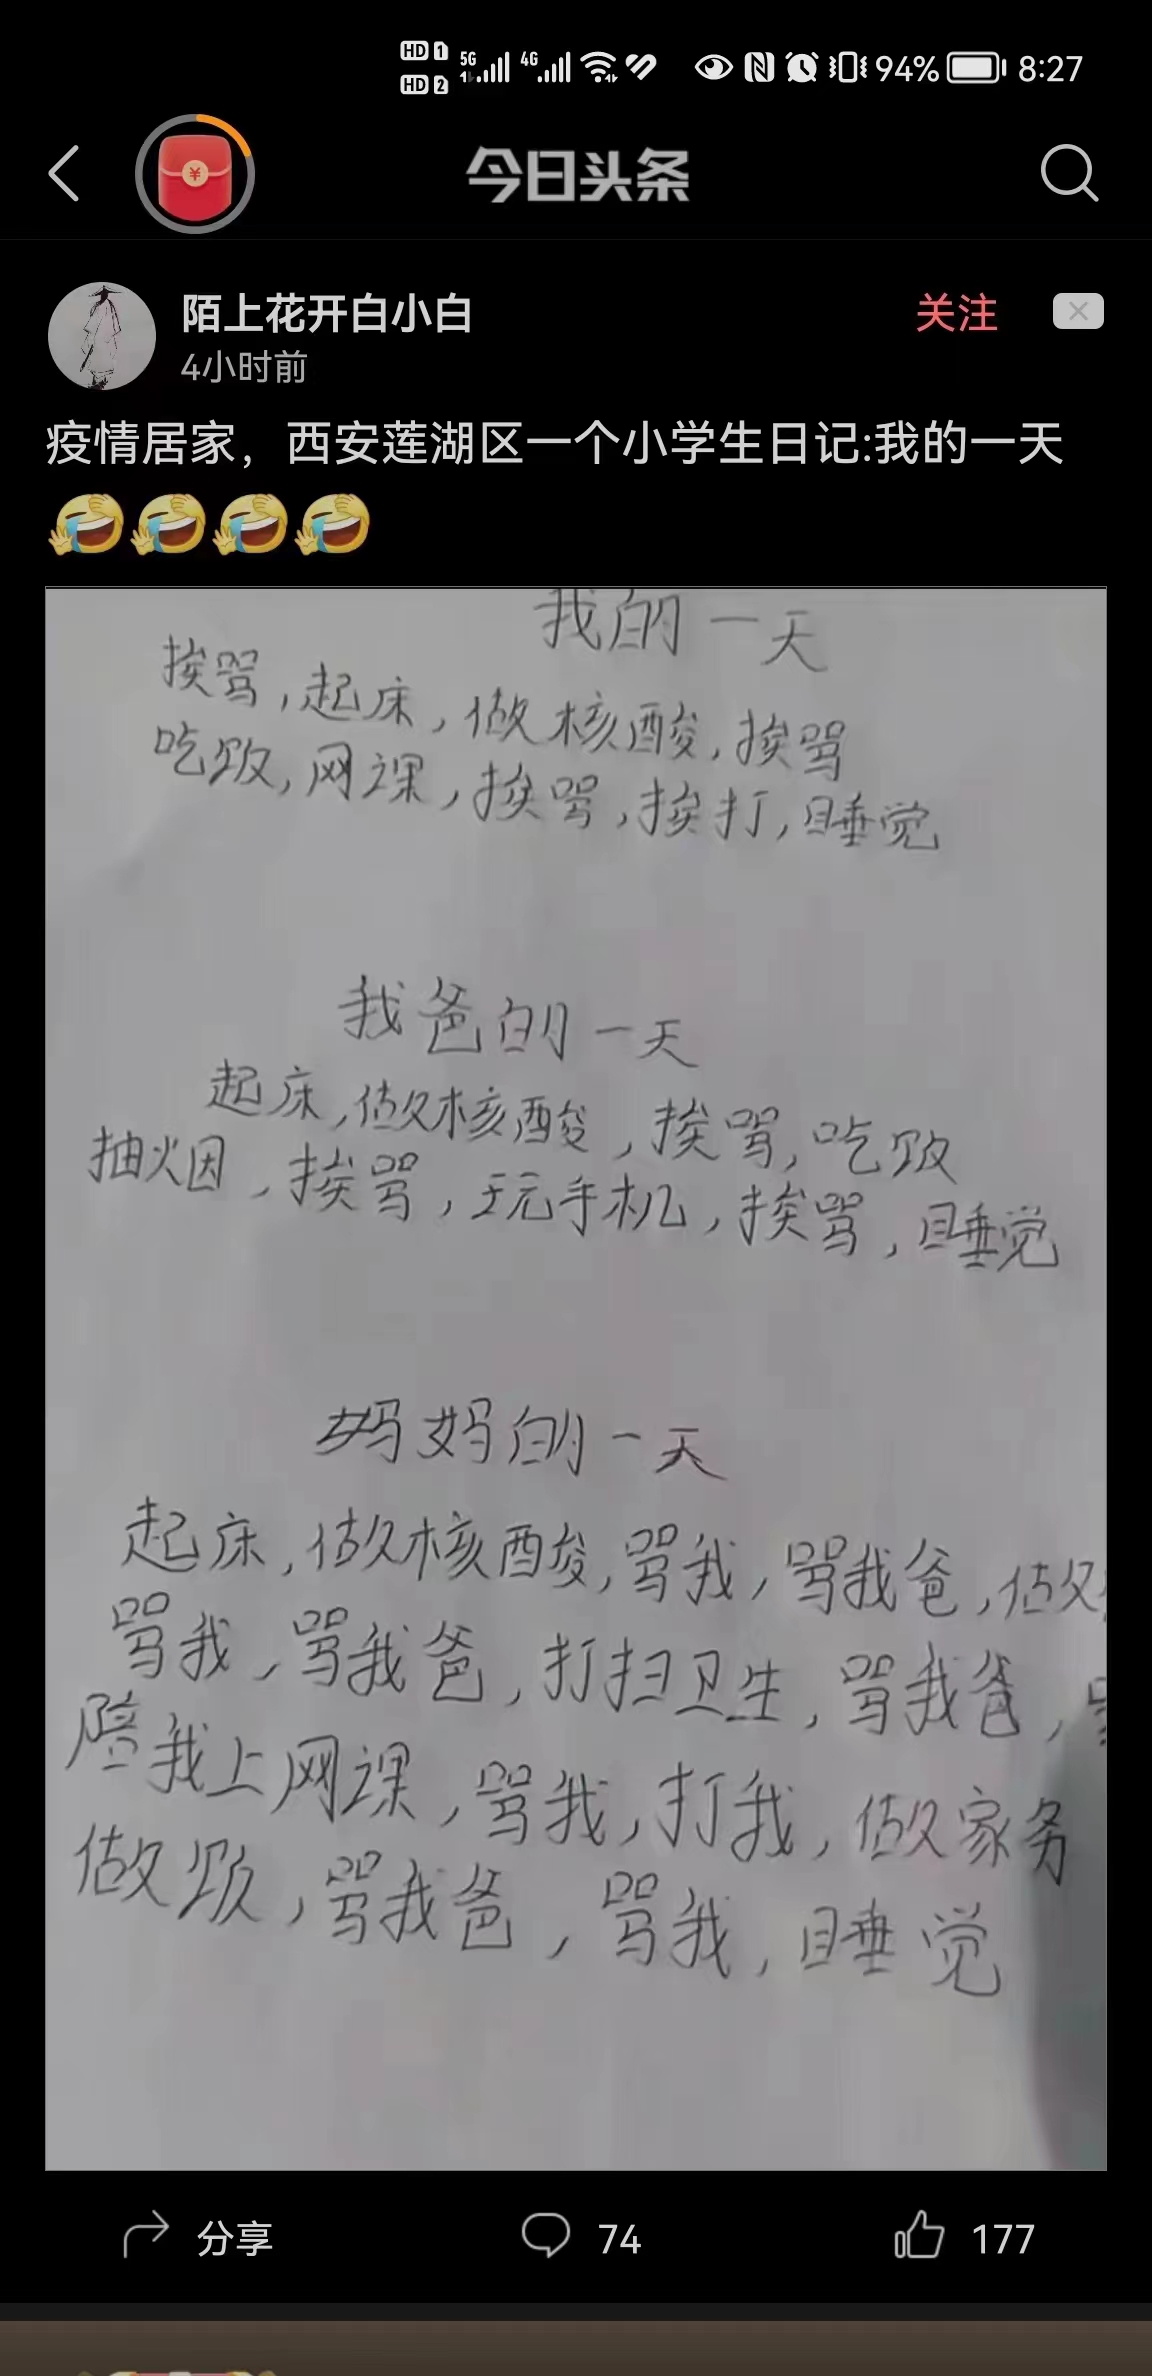 HD 1 5G 4G 94% 8:27
HD 2
¥ 今日头条
陌上花开白小白 关注
4小时前
疫情居家，西安莲湖区一个小学生日记:我的一天
我的一天
挨骂,起床,做核酸,挨骂
吃饭,网课,挨骂,挨打,睡觉
我爸的一天
起床,做核酸,挨骂,吃饭
抽烟,挨骂,玩手机,挨骂,睡觉
妈妈的一天
起床,做核酸,骂我,骂我爸,做
骂我,骂我爸,打扫卫生,骂我爸,
陪我上网课,骂我,打我,做家务
做饭,骂我爸,骂我,睡觉
分享 74 177